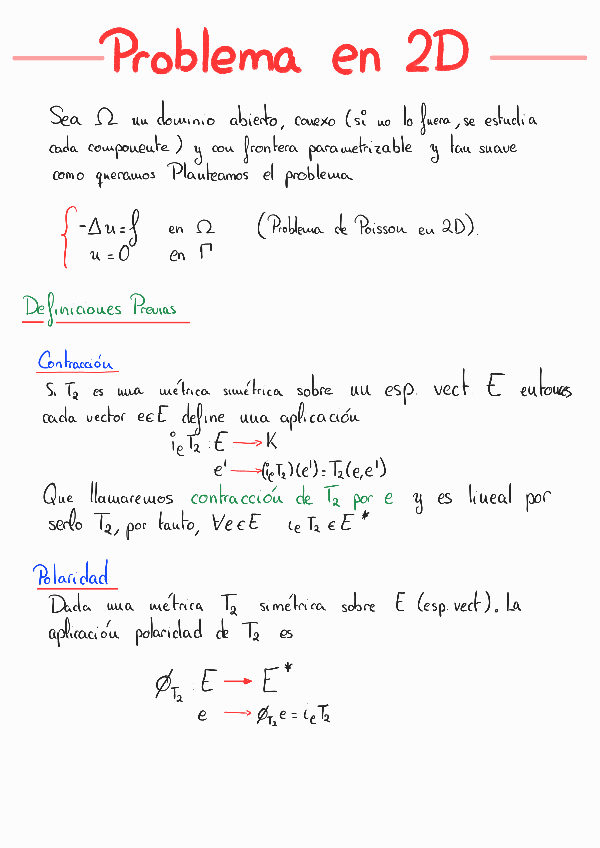 Problema en 2D
Sea Ω un dominio abierto, conexo (si no lo fuera, se estudia
cada componente) y con frontera parametrizable y tan suave
como queramos Planteamos el problema
-Δu = f en Ω (Problema de Poisson en 2D).
u = 0 en Γ
Definiciones Previas
Contracción
Si T₂ es una métrica simétrica sobre un esp. vect E entonces
cada vector e∈E define una aplicación
iₑT₂ : E → K
e' → (iₑT₂)(e') = T₂(e,e')
Que llamaremos contracción de T₂ por e y es lineal por
serlo T₂, por tanto, ∀e∈E iₑT₂ ∈ E*
Polaridad
Dada una métrica T₂ simétrica sobre E (esp. vect). La
aplicación polaridad de T₂ es
ϕ_T₂ : E → E*
e → ϕ_T₂ e = iₑT₂